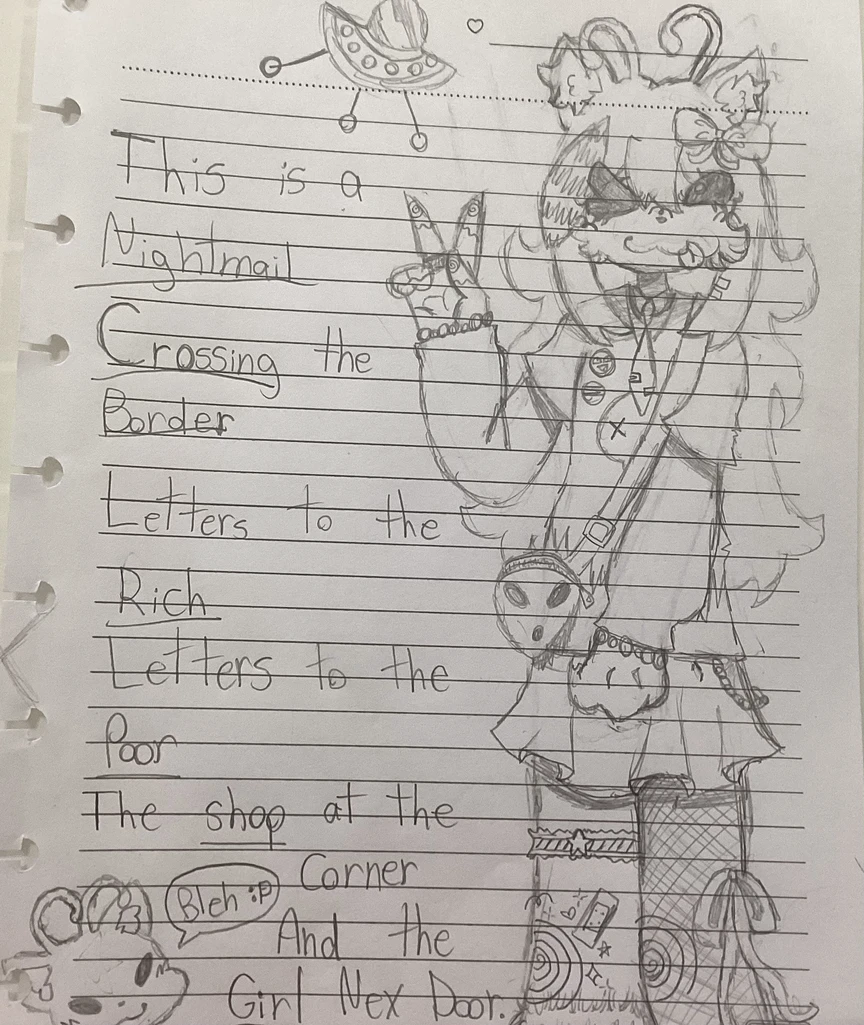 This is a
Nightmail
Crossing the
Border
Letters to the
Rich
Letters to the
Poor
The shop at the
Corner
And the
Girl Nex Door.
Bleh :P